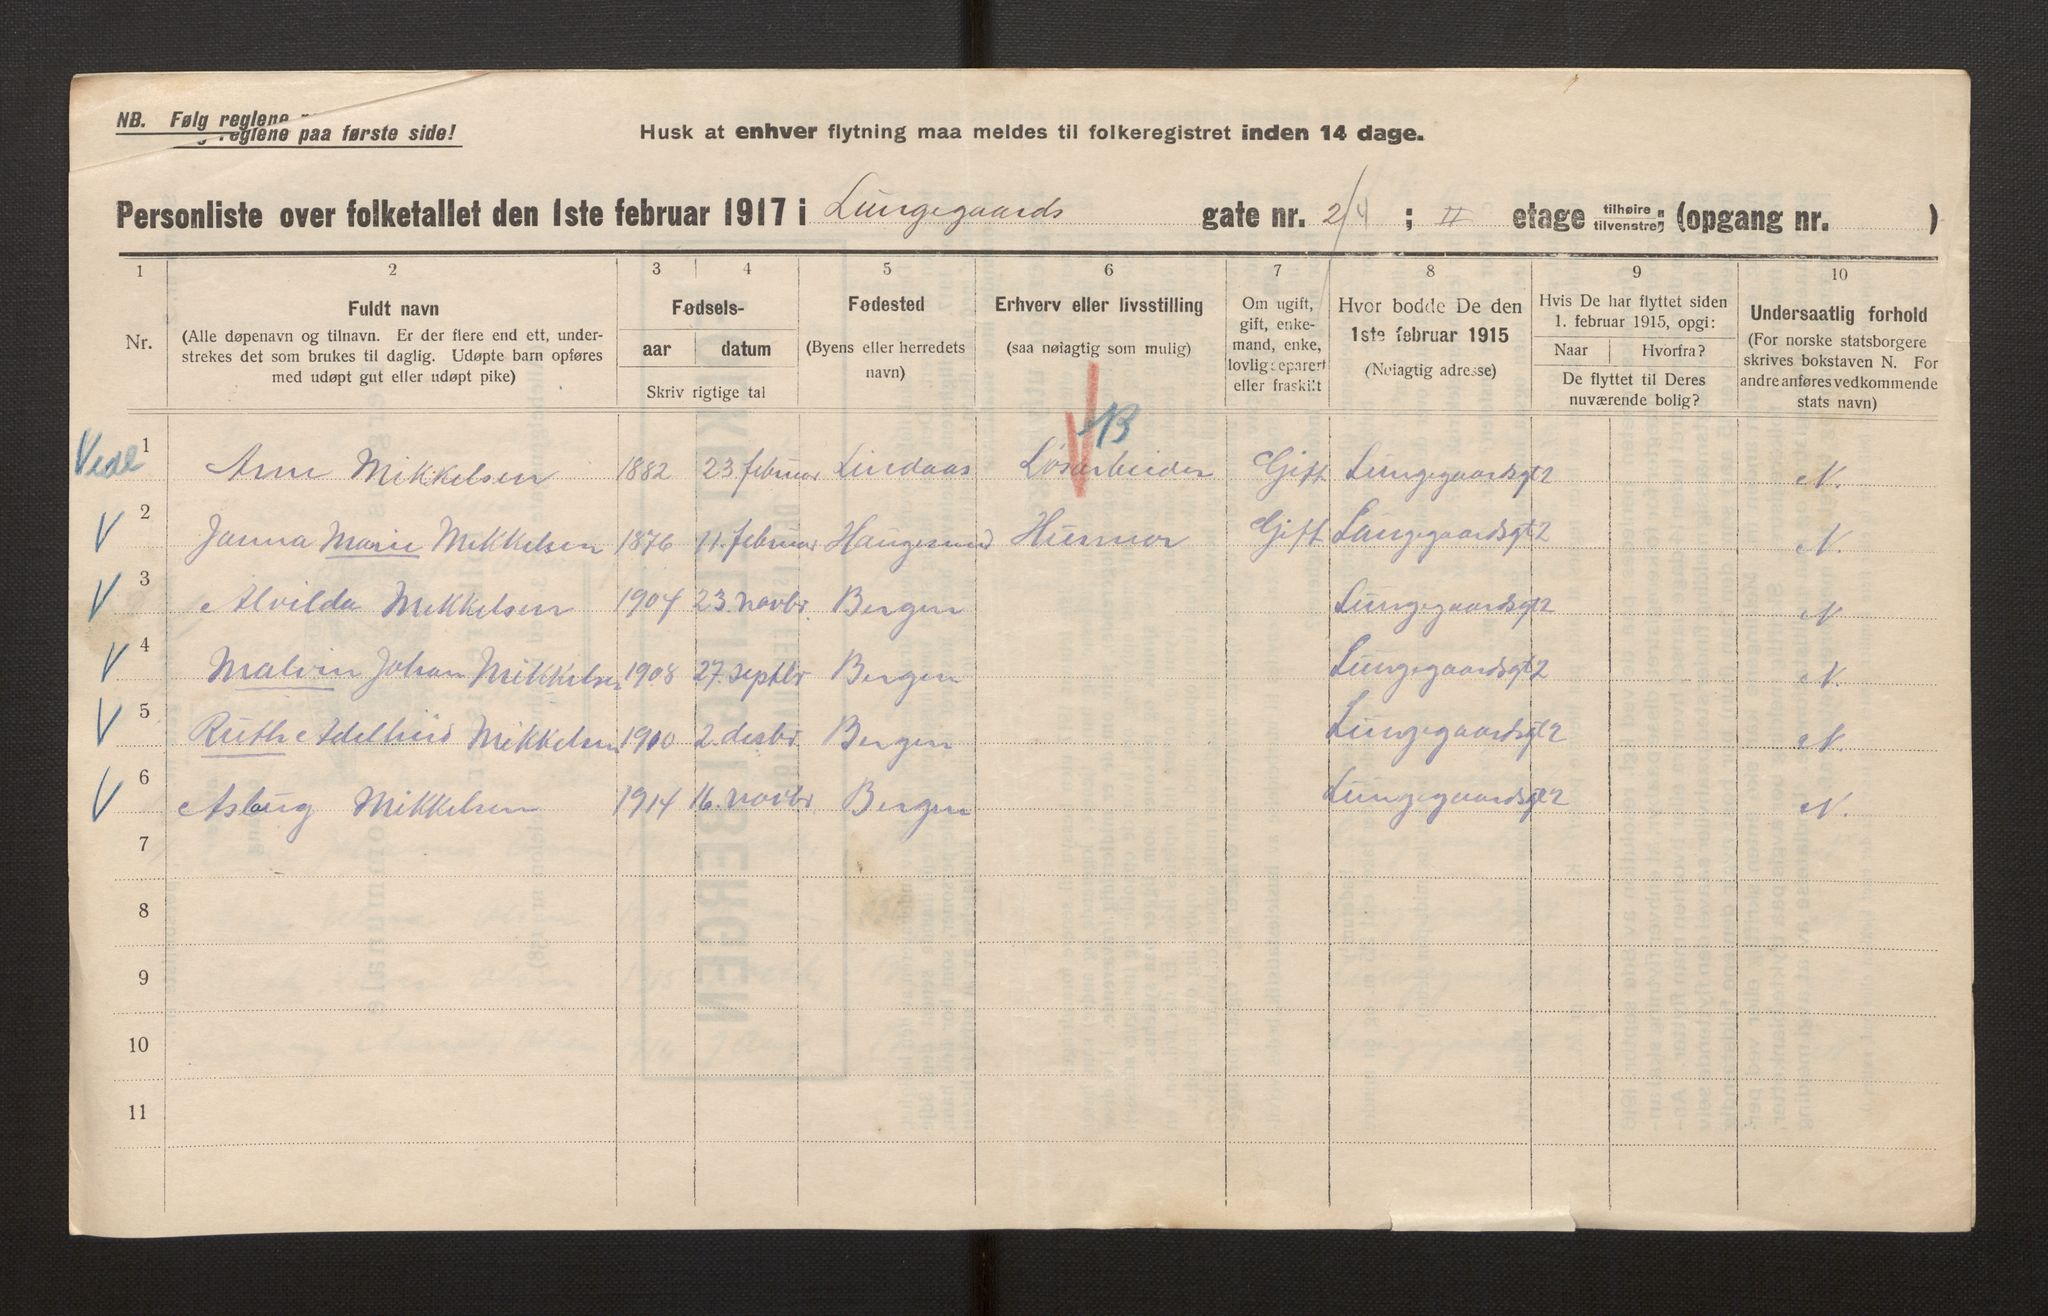 NB. Følg reglene
reglene paa første side!
Husk at enhver flytning maa meldes til folkeregistret inden 14 dage.
Personliste over folketallet den 1ste februar 1917 i Lungegaards gate nr. 2/4 ; II etage tilhøire tilvenstre ; (opgang nr. )
1 2 3 4 5 6 7 8 9 10
Nr.
Fuldt navn
(Alle døpenavn og tilnavn. Er der flere end ett, under-
strekes det som brukes til daglig. Udøpte barn opføres
med udøpt gut eller udøpt pike)
Fødsels-
aar datum
Skriv rigtige tal
Fødested
(Byens eller herredets
navn)
Erhverv eller livsstilling
(saa nøiagtig som mulig)
Om ugift,
gift, enke-
mand, enke,
lovlig separert
eller fraskilt
Hvor bodde De den
1ste februar 1915
(Nøiagtig adresse)
Hvis De har flyttet siden
1. februar 1915, opgi:
Naar Hvorfra?
De flyttet til Deres
nuværende bolig?
Undersaatlig forhold
(For norske statsborgere
skrives bokstaven N. For
andre anføres vedkommende
stats navn)
1 Arne Mikkelsen 1882 23 februar Lindaas Løsarbeider Gift Lungegaardsgt 2 N.
V 2 Janna Marie Mikkelsen 1876 11. februar Haugesund Husmor Gift Lungegaardsgt 2 N.
V 3 Alvilda Mikkelsen 1904 23. novbr. Bergen Lungegaardsgt 2 N
V 4 Malvin Johan Mikkelsen 1908 27. septbr Bergen Lungegaardsgt 2 N.
V 5 Ruth Adelheid Mikkelsen 1910 2. desbr. Bergen Lungegaardsgt 2 N.
V 6 Aslaug Mikkelsen 1914 16. novbr Bergen Lungegaardsgt 2 N.
7
8
9
10
11